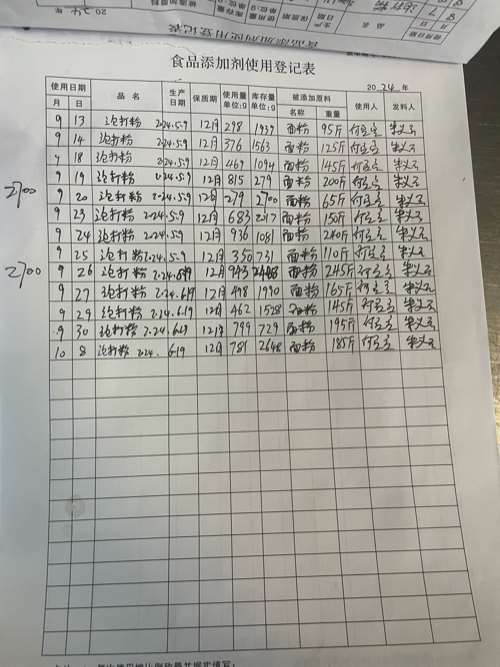 食品添加剂使用登记表
2024年
使用日期 品名 生产日期 保质期 使用量单位:g 库存量单位:g 被添加原料 使用人 发料人
月 日 名称 重量
9 13 泡打粉 2024.5.9 12月 298 1939 面粉 95斤
9 14 泡打粉 2024.5.9 12月 376 1563 面粉 125斤
9 18 泡打粉 2024.5.9 12月 469 1094 面粉 145斤
9 19 泡打粉 2024.5.9 12月 815 279 面粉 200斤
2700 9 20 泡打粉 2024.5.9 12月 279 2700 面粉 65斤
9 23 泡打粉 2024.5.9 12月 683 2017 面粉 150斤
9 24 泡打粉 2024.5.9 12月 936 1081 面粉 240斤
9 25 泡打粉 2024.5.9 12月 350 731 面粉 110斤
2700 9 26 泡打粉 2024.6.19 12月 943 面粉 245斤
9 27 泡打粉 2024.6.19 12月 498 1990 面粉 165斤
9 29 泡打粉 2024.6.19 12月 462 1528 面粉 145斤
9 30 泡打粉 2024.6.19 12月 799 729 面粉 195斤
10 8 泡打粉 2024.6.19 12月 781 2648 面粉 185斤